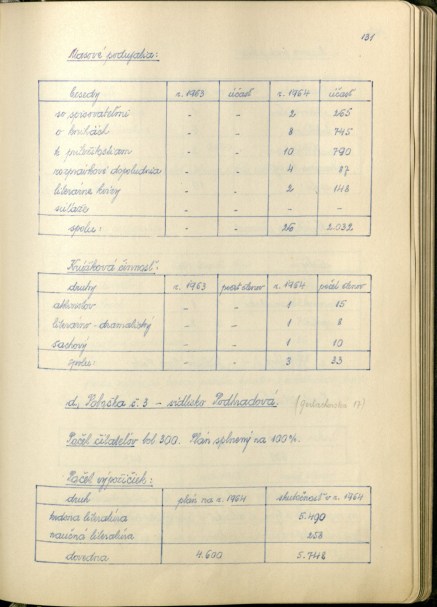 131
Masové podujatia:
besedy r. 1963 účasť r. 1964 účasť
so spisovateľmi - - 2 265
o knihách - - 8 745
k príležitostiam - - 10 790
rozprávkové dopoludnia - - 4
literárne kvízy - - 2 148
súťaže - - - -
spolu: - - 26 2.032
Krúžková činnosť:
druhy r. 1963 počet členov r. 1964 počet členov
aktivistov - - 1 15
literárno-dramatický - - 1 8
šachový - - 1 10
spolu: - - 3 33
d, Pobočka č. 3 - sídlisko Podhradová.
Počet čitateľov bol 300. Plán splnený na 100%.
Počet výpožičiek:
druh plán na r. 1964 skutočnosť v r. 1964
krásna literatúra 5.490
náučná literatúra 258
dovedna 4.600 5.748